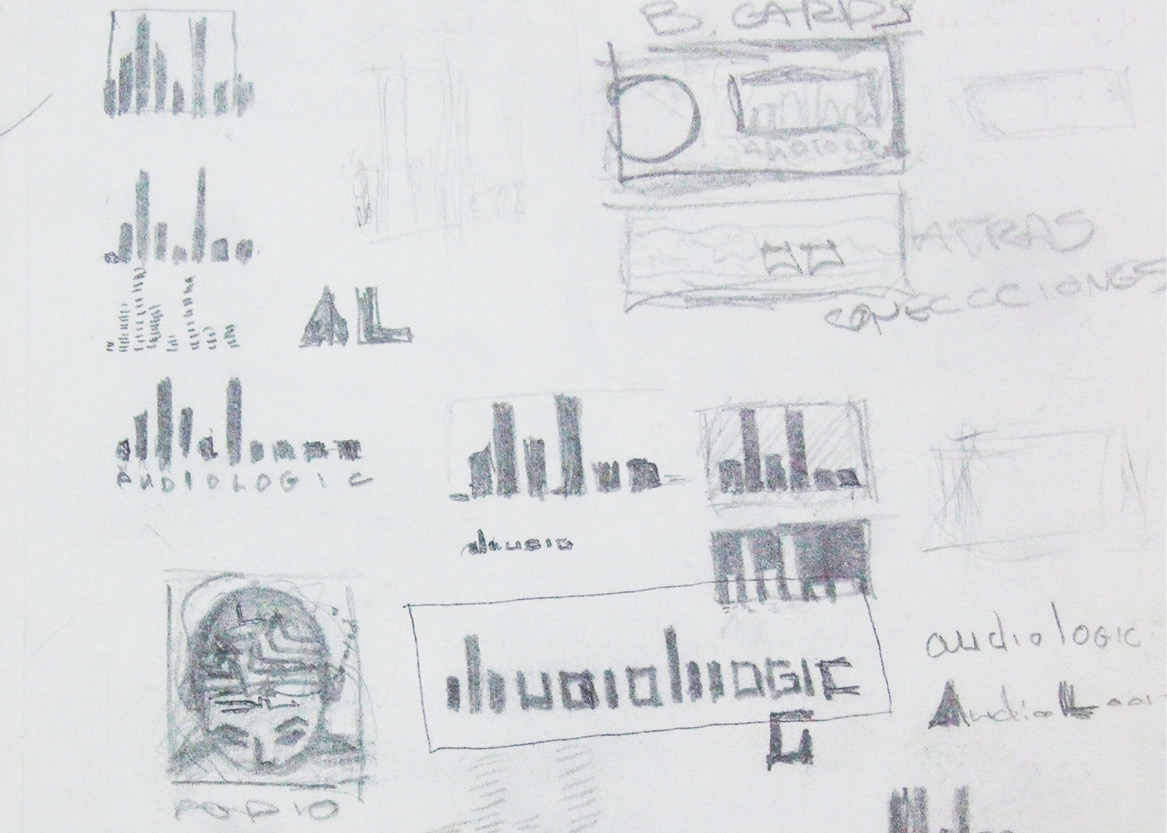 B. CARDS
AUDIOLOGIC
ATRAS
CONECCCIONES
AL
AUDIOLOGIC
AUDIO
AUDIOLOGIC
G
audiologIC
AudioL